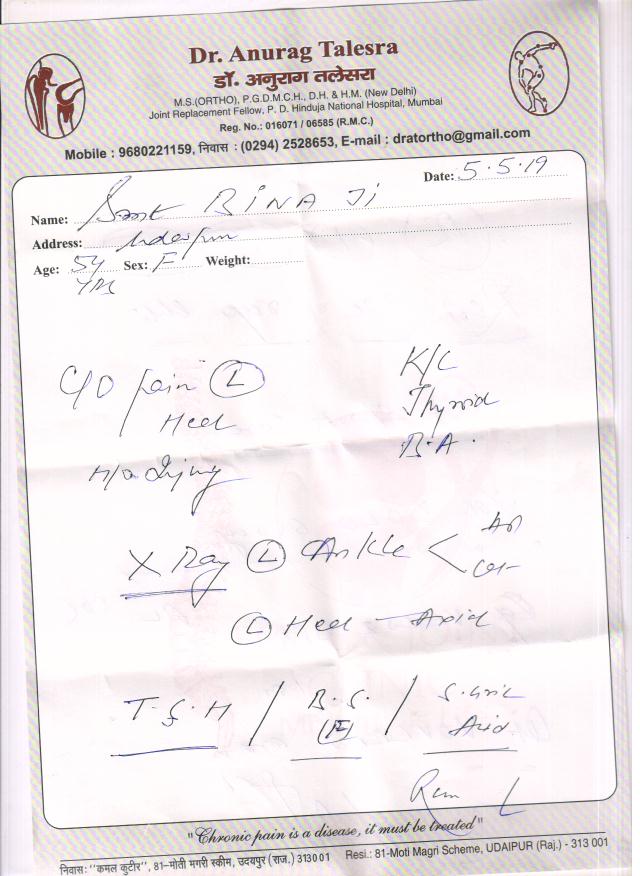 Dr. Anurag Talesra
डॉ. अनुराग तलेसरा
M.S.(ORTHO), P.G.D.M.C.H., D.H. & H.M. (New Delhi)
Joint Replacement Fellow, P. D. Hinduja National Hospital, Mumbai
Reg. No.: 016071 / 06585 (R.M.C.)
Mobile : 9680221159, निवास : (0294) 2528653, E-mail : dratortho@gmail.com
Date: 5.5.19
Name: Smt RINA Ji
Address:
Age: 54 Sex: F Weight:
yrs
C/O pain (L)
Heel
K/C
Thyroid
B.A.
H/o Injury
X Ray (L) Ankle < AP
Lat
(L) Heel - Axial
T.S.H / B.S. / S. Uric
(F) Acid
"Chronic pain is a disease, it must be treated"
निवास: "कमल कुटीर", 81-मोती मगरी स्कीम, उदयपुर (राज.) 313001 Resi.: 81-Moti Magri Scheme, UDAIPUR (Raj.) - 313 001